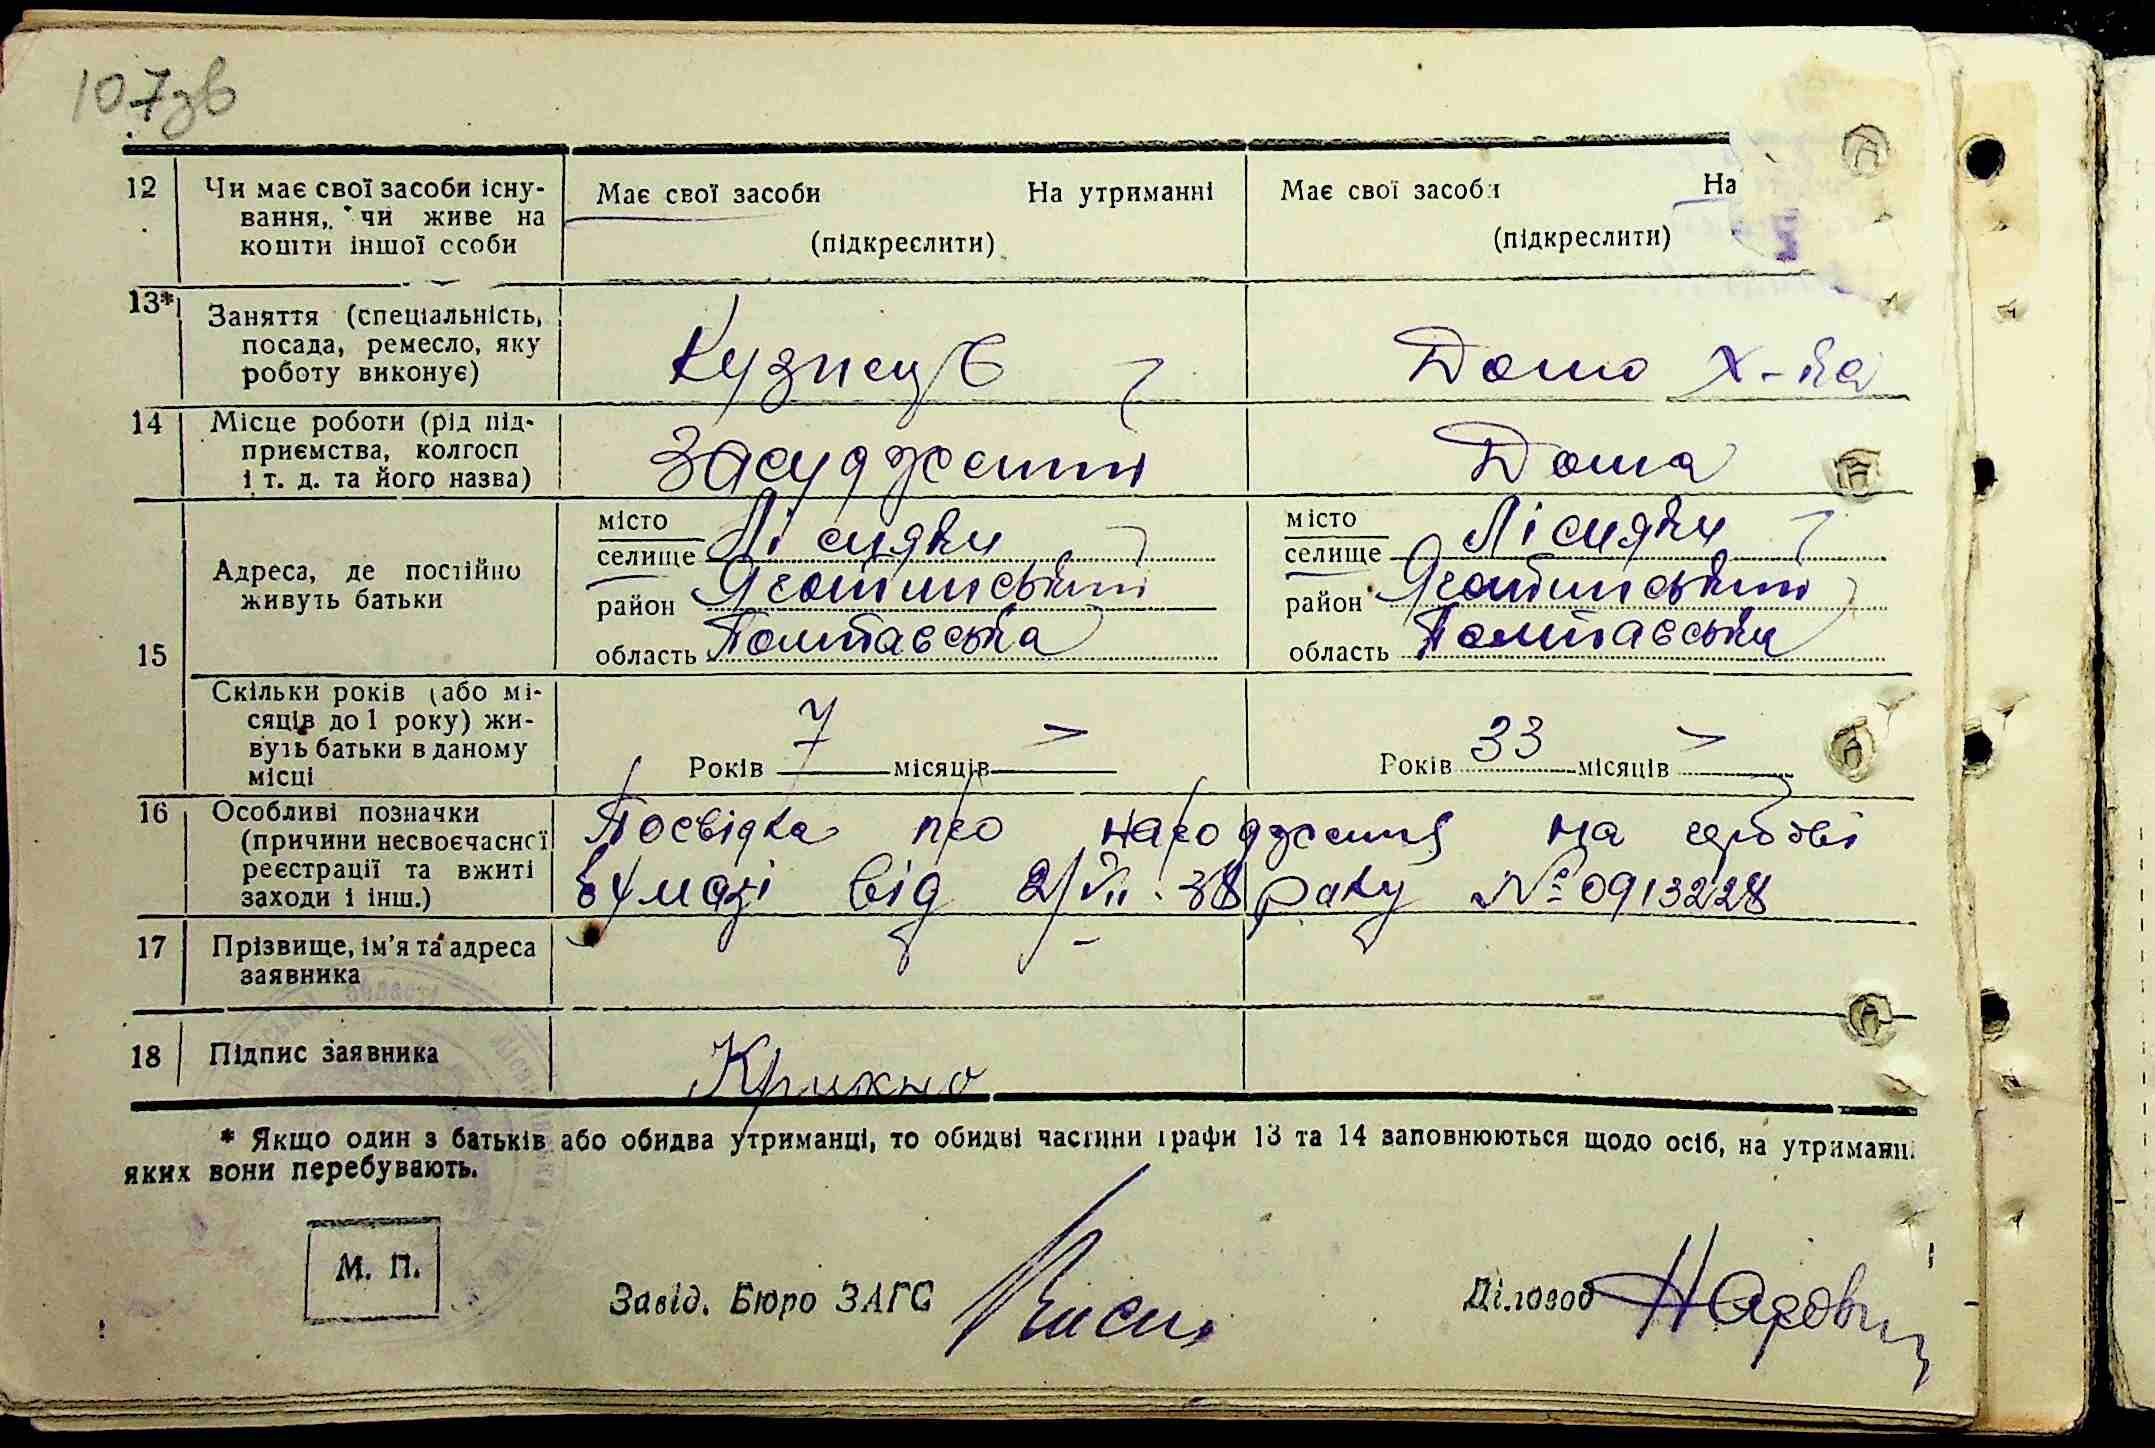 107зв
12 Чи має свої засоби існу-
вання, чи живе на
кошти іншої особи
Має свої засоби На утриманні
(підкреслити)
Має свої засоби На
(підкреслити)
13* Заняття (спеціальність,
посада, ремесло, яку
роботу виконує)
Кузнець
Домо х-ка
14 Місце роботи (рід під-
приємства, колгосп
і т. д. та його назва)
Засудженій
Дома
15
Адреса, де постійно
живуть батьки
місто
селище Лісняки
район Яготинський
область Полтавська
місто
селище Лісняки
район Яготинський
область Полтавська
Скільки років (або мі-
сяців до 1 року) жи-
вуть батьки в даному
місці
Років 7 місяців
Років 33 місяців
16 Особливі позначки
(причини несвоєчасної
реєстрації та вжиті
заходи і інш.)
Посвідка про народження на гербові
бумазі від 2/VII 38 року № 0913228
17 Прізвище, ім'я та адреса
заявника
18 Підпис заявника
* Якщо один з батьків або обидва утриманці, то обидві частини графи 13 та 14 заповнюються щодо осіб, на утриманні
яких вони перебувають.
М. П.
Завід. Бюро ЗАГС
Діловод